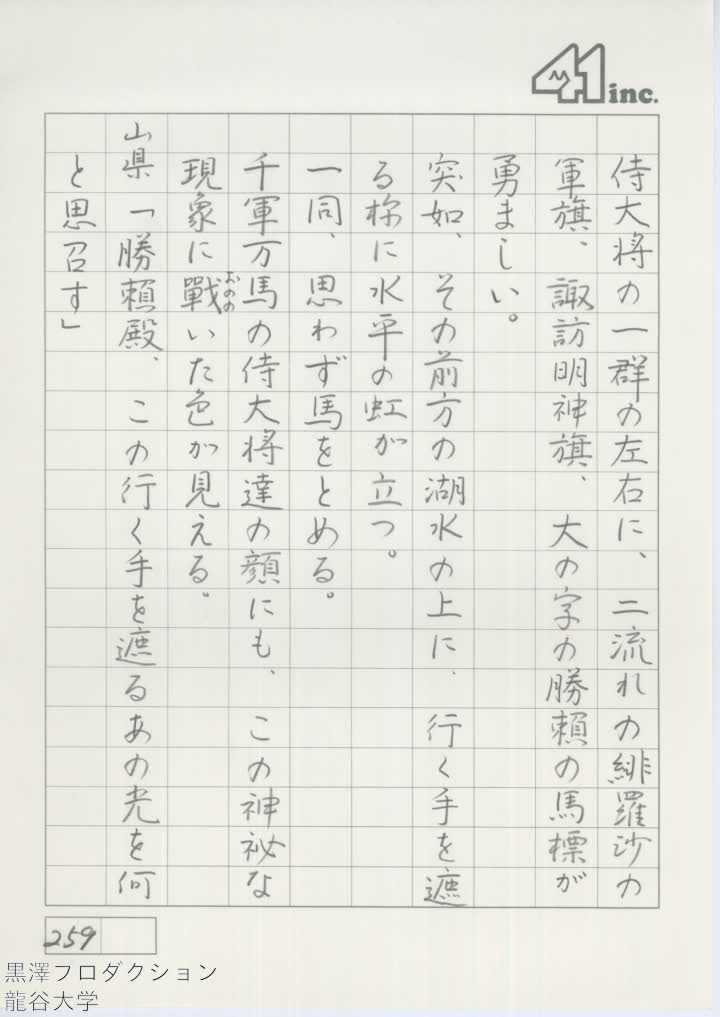 41 inc.
侍大将の一群の左右に、二流れの緋羅沙の
軍旗、諏訪明神旗、大の字の勝頼の馬標が
勇ましい。
突如、その前方の湖水の上に、行く手を遮
る様に水平の虹が立つ。
一同、思わず馬をとめる。
千軍万馬の侍大将達の顔にも、この神祕な
現象に戰いた色が見える。
おのの
山県「勝頼殿、この行く手を遮るあの光を何
と思召す」
259
黒澤プロダクション
龍谷大学